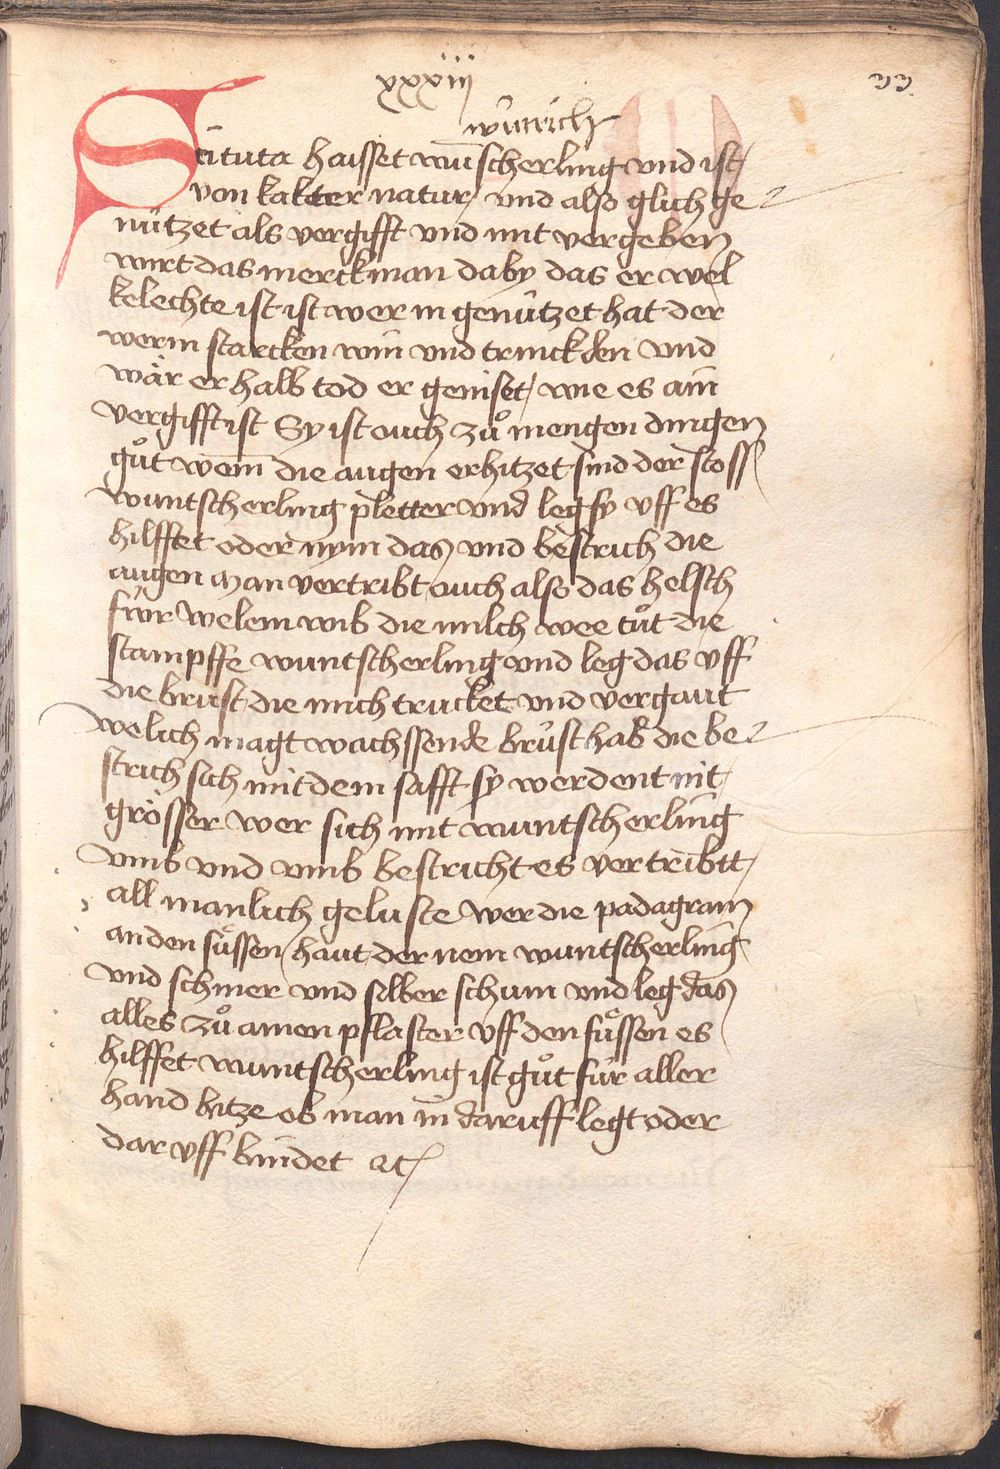 xxxiij
33
wutrich
Scituta haisset wunscherling vnd ist
von kalter natur vnd also glich ge
nützet als vergifft vnd mit vergeben
wirt das merck man daby das er wel
kelechte ist ist wer in genützet hat der
werm starcken win vnd trinck den vnd
wär er halb tod er geniset wie es ain
vergifft ist Sy ist ouch zů mengen dingen
gůt wem die augen erhitzet sind der stoss
wuntscherling pletter vnd leg sy vff es
hilffet oder nym das vnd bestrich die
augen man vertribt ouch also das helsch
für welem wib die milch wee tůt die
stampffe wuntscherling vnd leg das vff
die brust die mich trucket vnd vergaut
welich magt wachssende brüst hab die be
strich sich mit dem safft sy werdent nit
grösser wer sich mit wuntscherling
vmb vnd vmb bestricht es vertribtt
all manlich geluste wer die padagram
an den füssen haut der nem wuntscherling
vnd schmer vnd silber schum vnd leg das
alles zů amen pflaster vff den füssen es
hilffet wuntscherling ist gůt für aller
hand hitze ob man in daruff legt oder
dar vff bindet etc